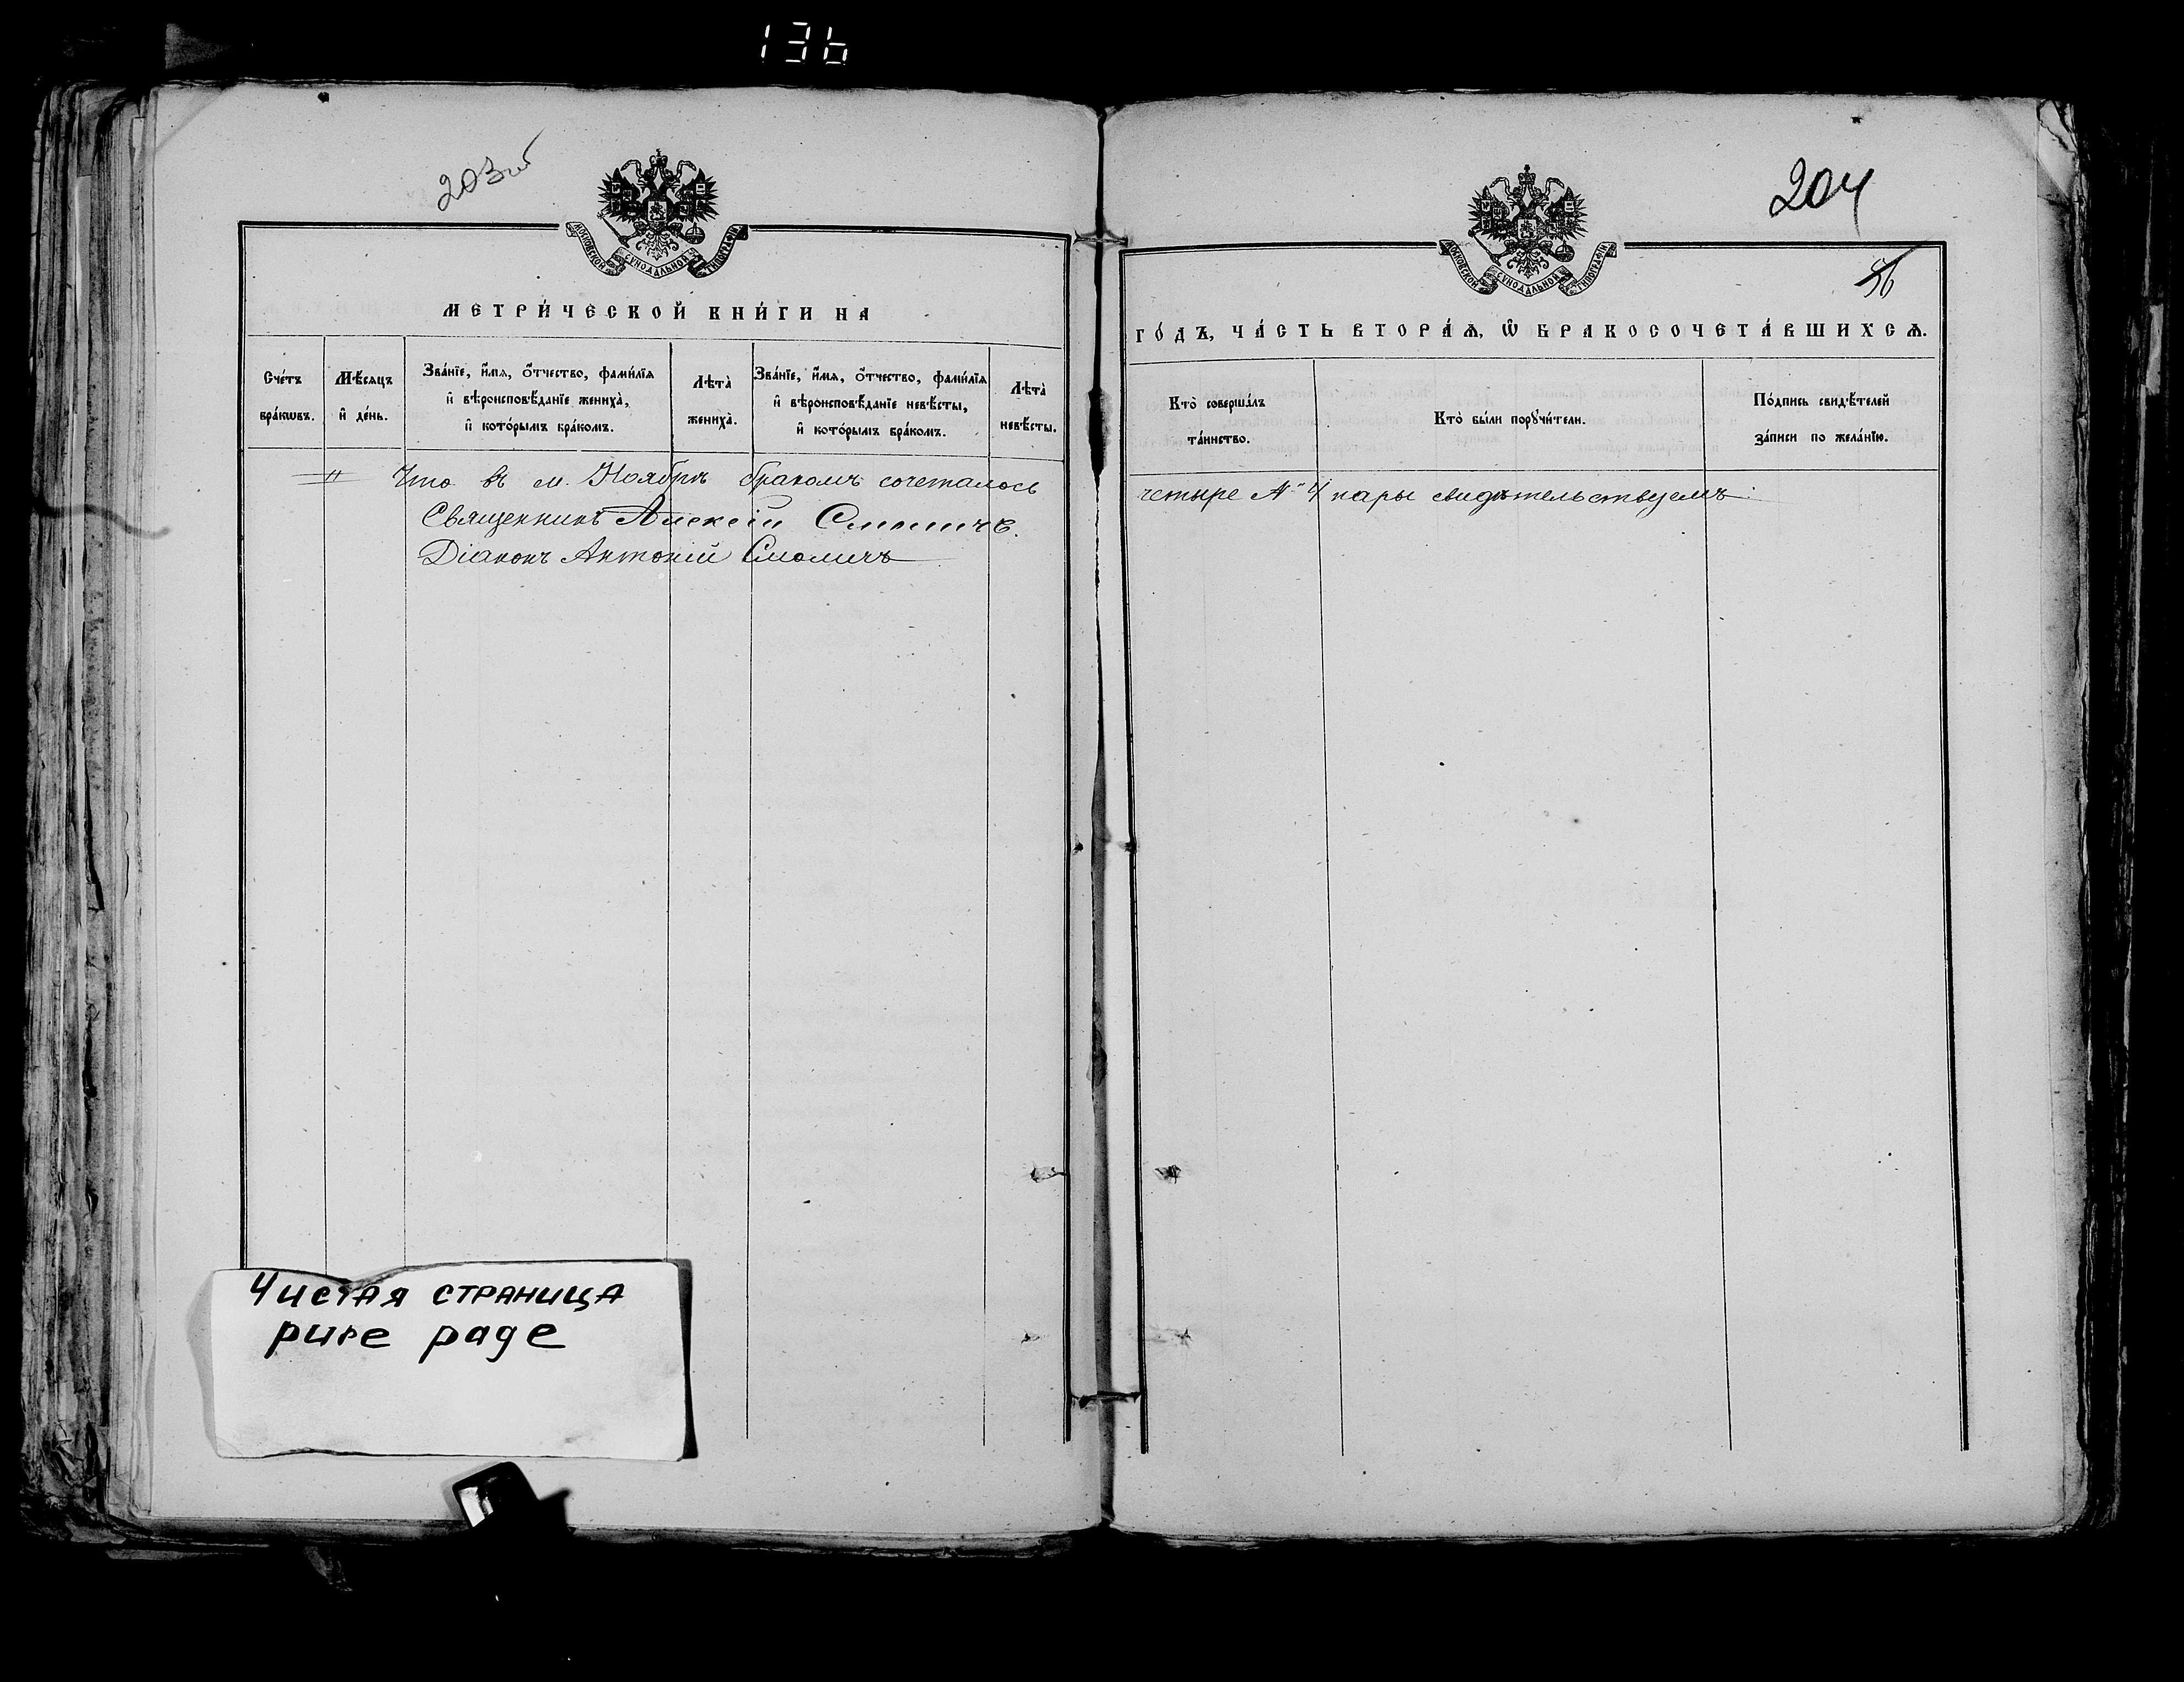 136
203об
МОСКОВСКОЙ СѴНОДАЛЬНОЙ ТИПОГРАФІИ
МЕТРИ́ЧЕСКОЙ КНИ́ГИ НА
Сче́тъ бра́кѡвъ.
Мѣ́сяцъ и҆ де́нь.
Зва́нїе, и҆́мѧ, ѻ҆́тчество, фами́лїѧ и҆ вѣроисповѣ́данїе жениха̀, и҆ кото́рымъ бра́комъ.
Лѣта̀ жениха̀.
Зва́нїе, и҆́мѧ, ѻ҆́тчество, фами́лїѧ и҆ вѣроисповѣ́данїе невѣ́сты, и҆ кото́рымъ бра́комъ.
Лѣта̀ невѣ́сты.
Что въ м. Ноябрѣ бракомъ сочеталось
Священникъ Алексій
Діаконъ Антоній Смоличъ
Чистая страница
pure page
204
56
МОСКОВСКОЙ СѴНОДАЛЬНОЙ ТИПОГРАФІИ
ГО́ДЪ, ЧА́СТЬ ВТОРА́Ѧ, Ѿ БРАКОСОЧЕТА́ВШИХСѦ.
Кто̀ соверша́лъ та́инство.
Кто̀ бы́ли порꙋчи́тели.
По́дпись свидѣ́телей за́писи по жела́нїю.
четыре № 4 пары свидѣтельствуемъ: